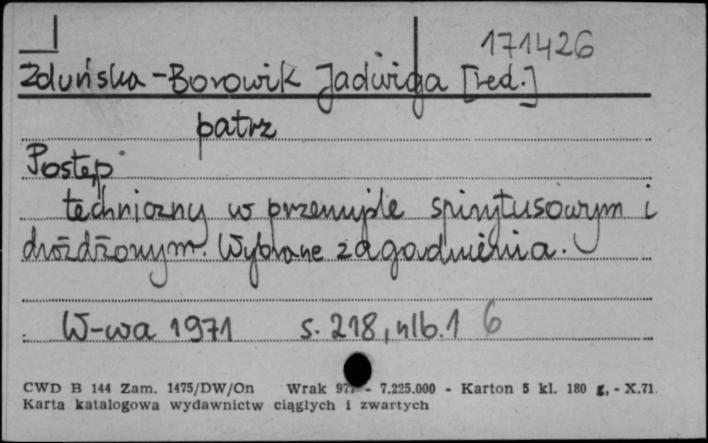 171426
Zduńska-Borowik Jadwiga [red.]
patrz
Postęp
techniczny w przemyśle spirytusowym i
drożdżowym. Wybrane zagadnienia.
W-wa 1971 s. 218, nlb. 1 6
CWD B 144 Zam. 1475/DW/On Wrak - 7.225.000 - Karton 5 kl. 180 g, - X.71.
Karta katalogowa wydawnictw ciągłych i zwartych